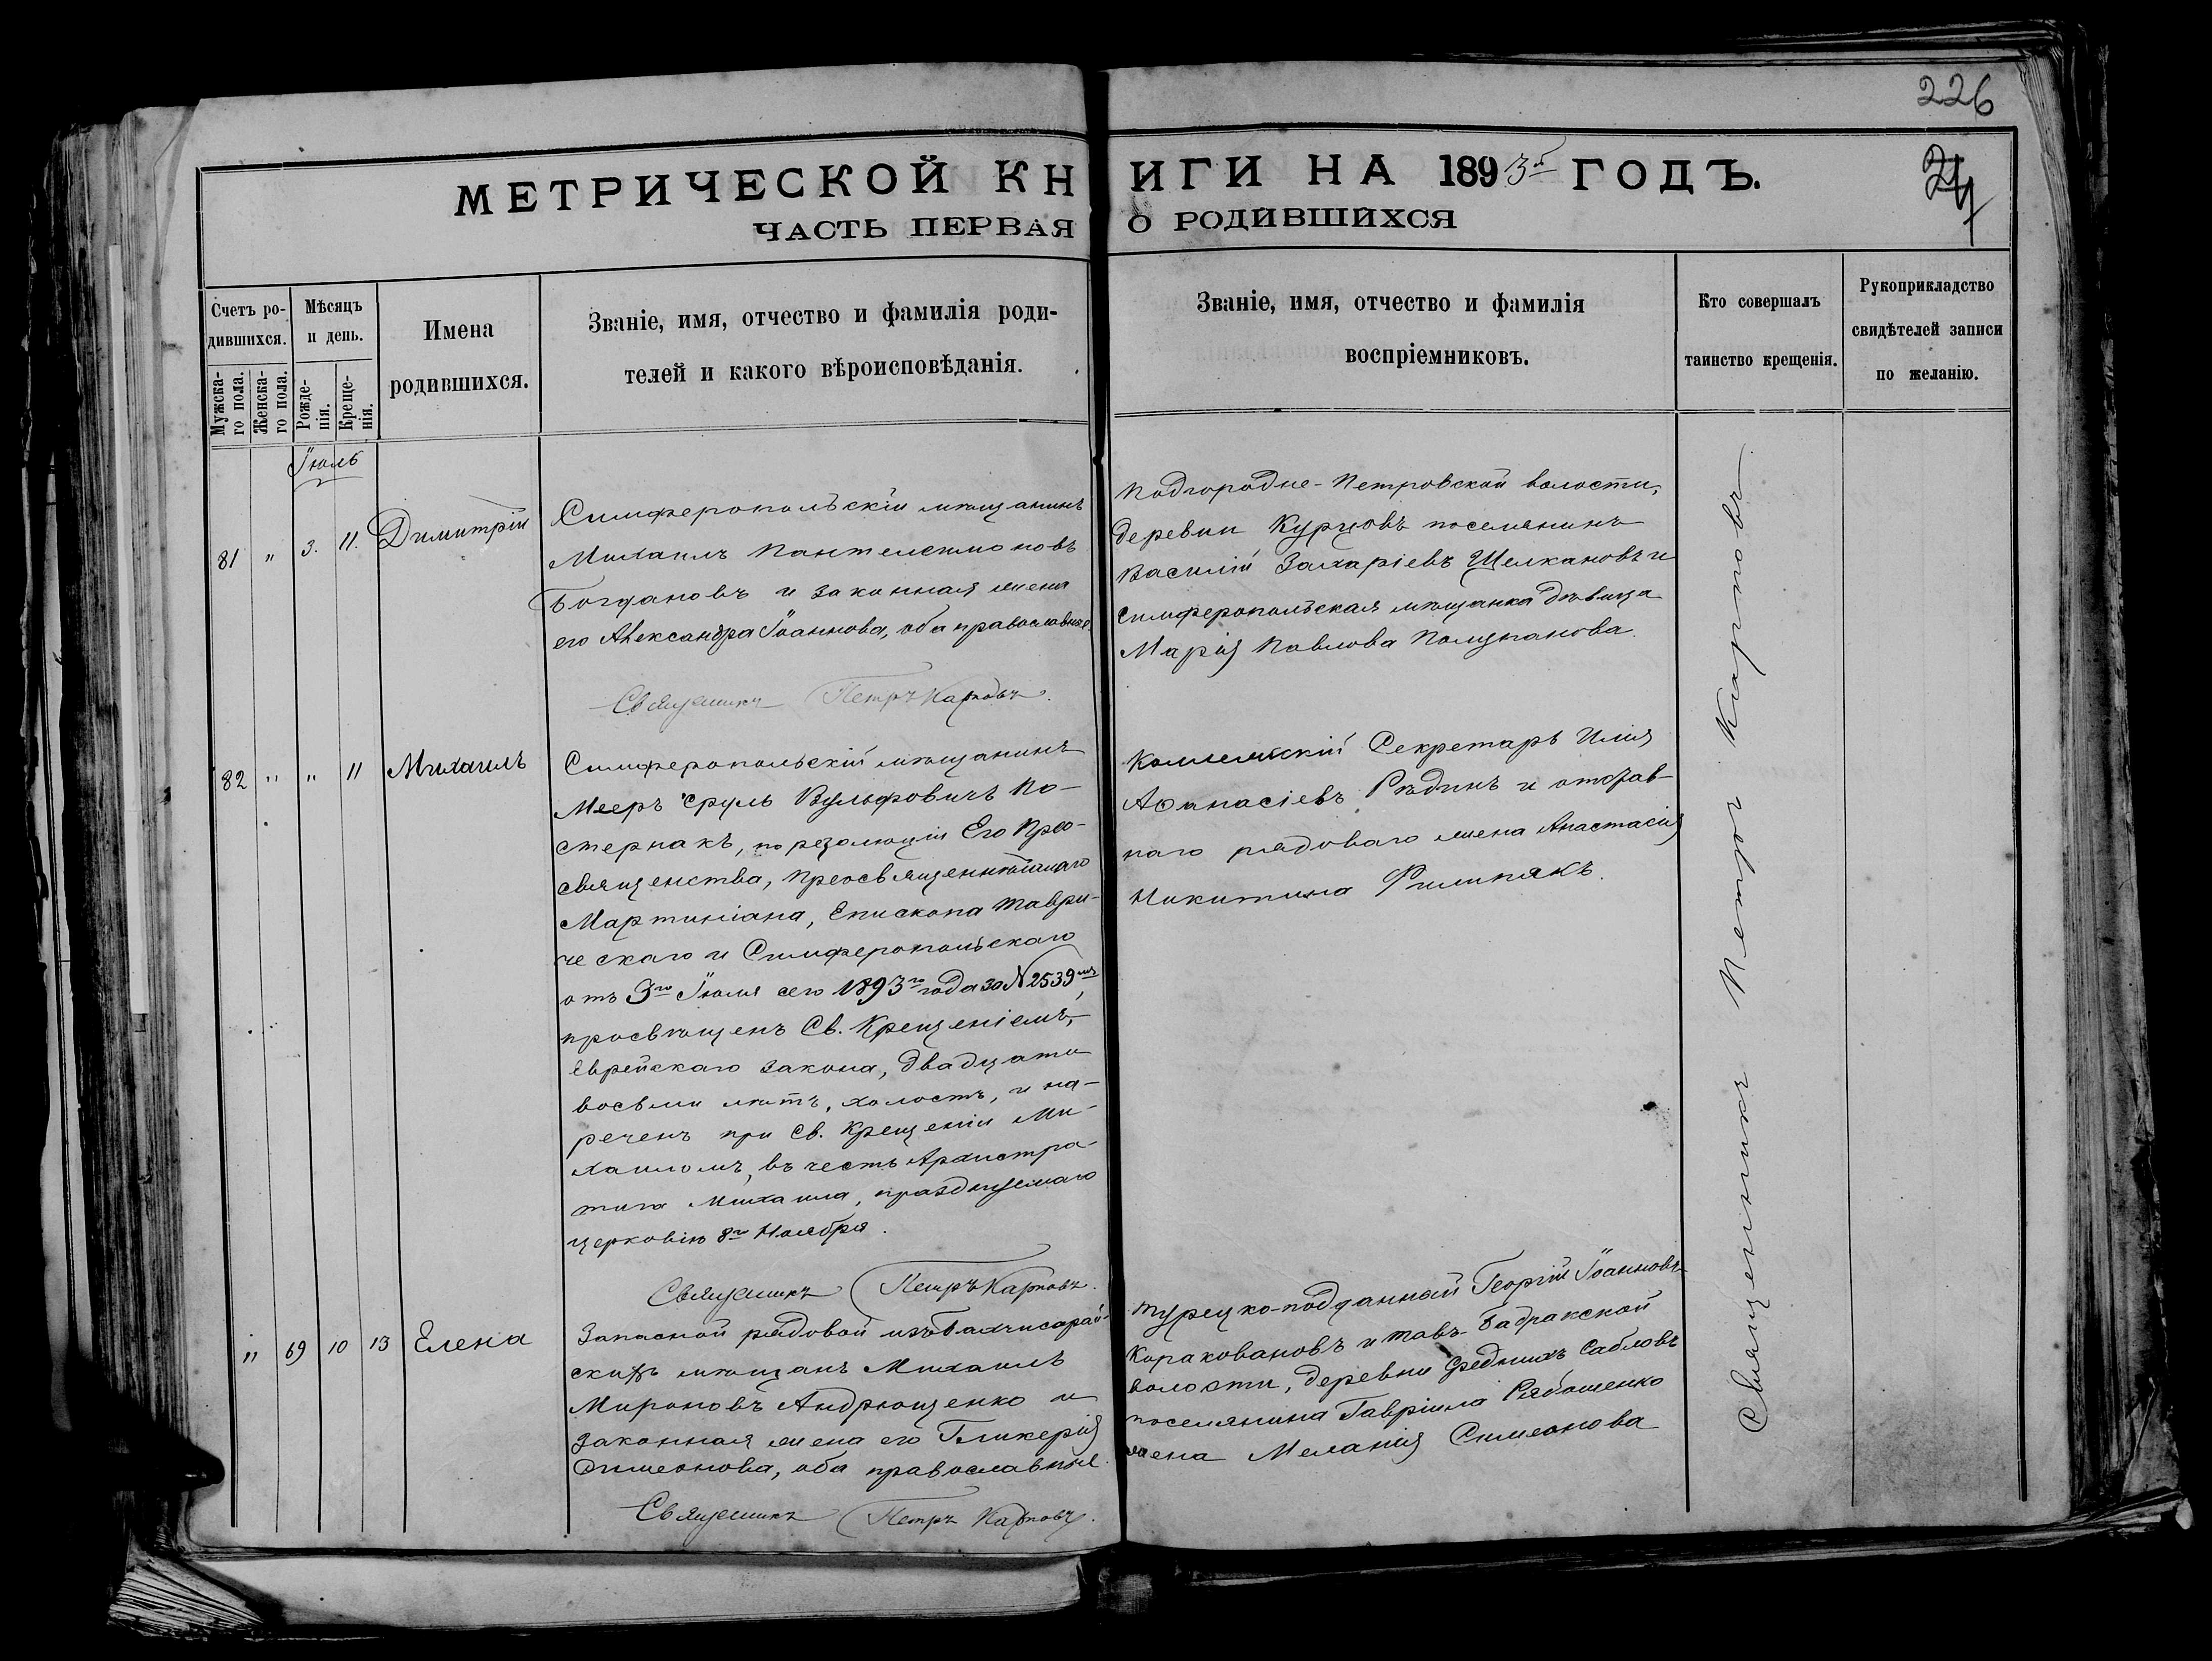 226
МЕТРИЧЕСКОЙ КНИГИ НА 1893й ГОДЪ.
24
ЧАСТЬ ПЕРВАЯ О РОДИВШИХСЯ
Счетъ ро-
дившихся.
Мужска-
го пола.
Женска-
го пола.
Мѣсяцъ
и день.
Рожде-
нія.
Креще-
нія.
Имена
родившихся.
Званіе, имя, отчество и фамилія роди-
телей и какого вѣроисповѣданія.
Званіе, имя, отчество и фамилія
воспріемниковъ.
Кто совершалъ
таинство крещенія.
Рукоприкладство
свидѣтелей записи
по желанію.
Іюль
81 " 3. 11. Димитрій
Симферопольскій мѣщанинъ
Михаилъ Пантелеимоновъ
Богдановъ и законная жена
его Александра Іоаннова, оба православные.
Священникъ Петръ Карповъ.
Подгородне-Петровской волости,
деревни Курцовъ поселянинъ
Василій Захаріевъ Щелкановъ и
Симферопольская мѣщанка дѣвица
Марія Павлова
82 " " 11 Михаилъ
Симферопольскій мѣщанинъ
Мееръ Сруль Вульфовичъ По-
стернакъ, по резолюціи Его Прео-
священства, Преосвященнѣйшаго
Мартиніана, Епископа Таври-
ческаго и Симферопольскаго
отъ 3го Іюля сего 1893го года за №2539мъ,
просвѣщенъ Св. Крещеніемъ,
Еврейскаго закона, двадцати
восьми лѣтъ, холостъ, и на-
реченъ при Св. Крещеніи Ми-
хаиломъ, въ честь Архистра-
тига Михаила, празднуемаго
церковію 8го Ноября.
Священникъ Петръ Карповъ.
Секретарь Илія
Аѳанасіевъ Рѣдинъ и отстав-
наго рядоваго жена Анастасія
Никитина Филипякъ.
" 69 10 13 Елена
Запасной рядовой изъ Бахчисарай-
скихъ мѣщанъ Михаилъ
Мироновъ Андрющенко и
законная жена его Гликерія
Симеонова, оба православные.
Священникъ Петръ Карповъ.
Турецко-подданный Георгій Іоанновъ
Караковановъ и Тавъ-Бадракской
волости, деревни Среднихъ Сабловъ
поселянина Гавріила Рябошенко
жена Меланія Симеонова
Священникъ Петръ Карповъ